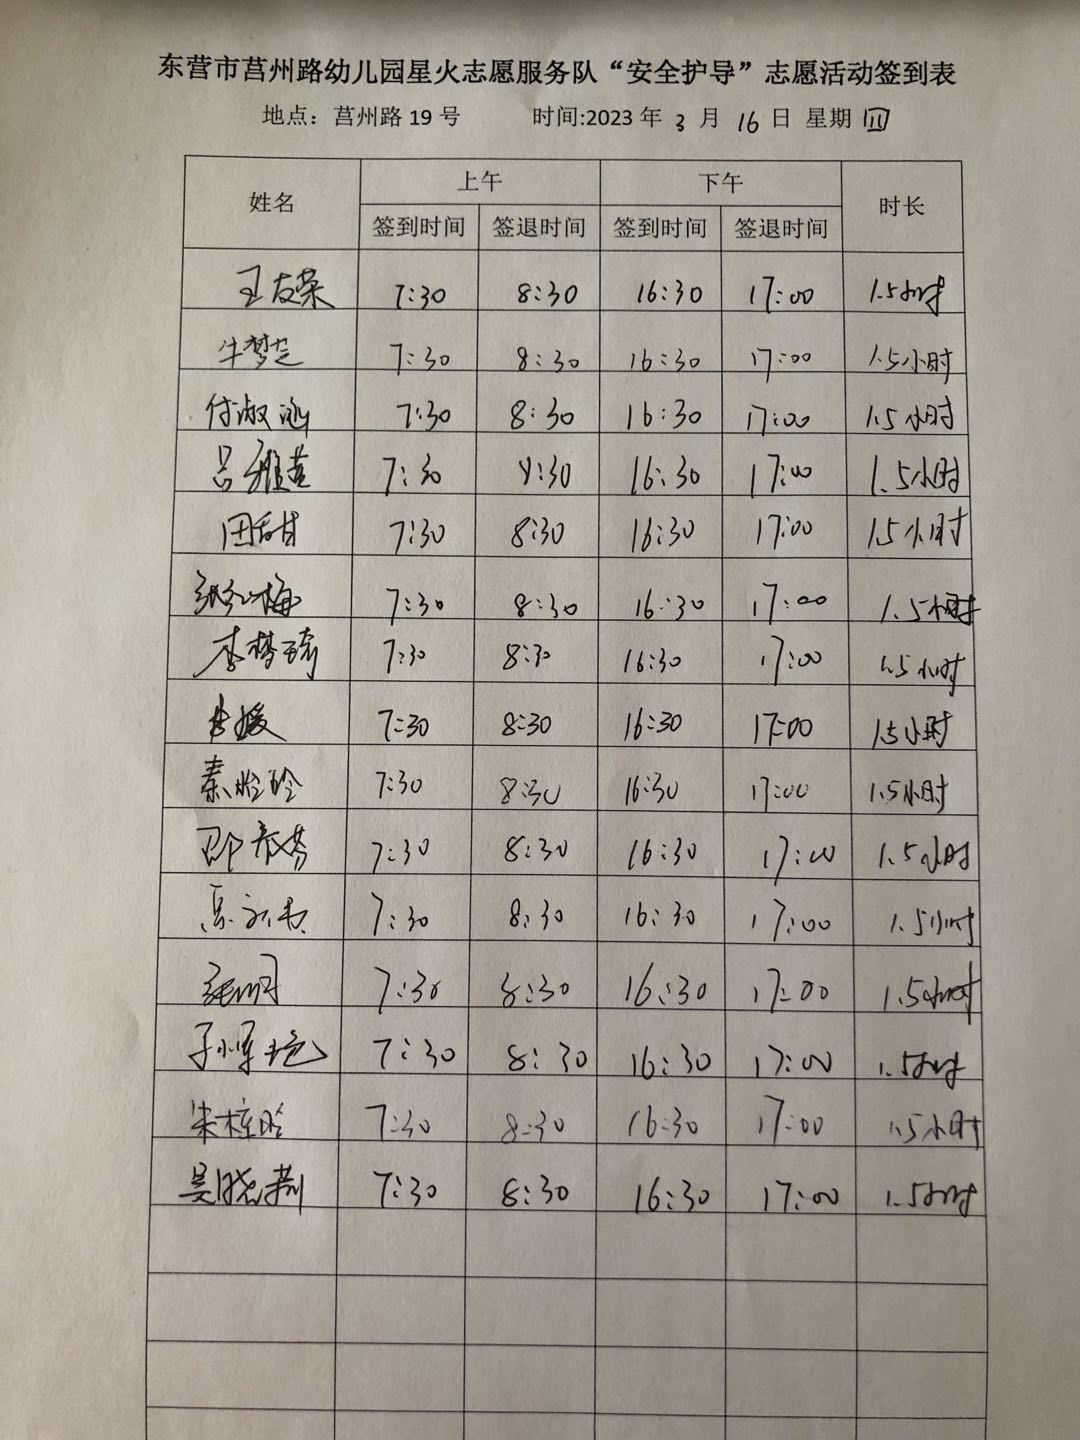 东营市莒州路幼儿园星火志愿服务队“安全护导”志愿活动签到表
地点：莒州路 19 号 时间:2023 年 3 月 16 日 星期 四
姓名 上午 下午 时长
签到时间 签退时间 签到时间 签退时间
王友荣 7:30 8:30 16:30 17:00 1.5小时
牛梦芝 7:30 8:30 16:30 17:00 1.5小时
付淑涵 7:30 8:30 16:30 17:00 1.5小时
吕雅莲 7:30 8:30 16:30 17:00 1.5小时
田甜 7:30 8:30 16:30 17:00 1.5小时
张红梅 7:30 8:30 16:30 17:00 1.5小时
李梦琦 7:30 8:30 16:30 17:00 1.5小时
李媛 7:30 8:30 16:30 17:00 1.5小时
秦玲玲 7:30 8:30 16:30 17:00 1.5小时
7:30 8:30 16:30 17:00 1.5小时
7:30 8:30 16:30 17:00 1.5小时
7:30 8:30 16:30 17:00 1.5小时
孙军艳 7:30 8:30 16:30 17:00 1.5小时
朱桂晗 7:30 8:30 16:30 17:00 1.5小时
吴晓莉 7:30 8:30 16:30 17:00 1.5小时